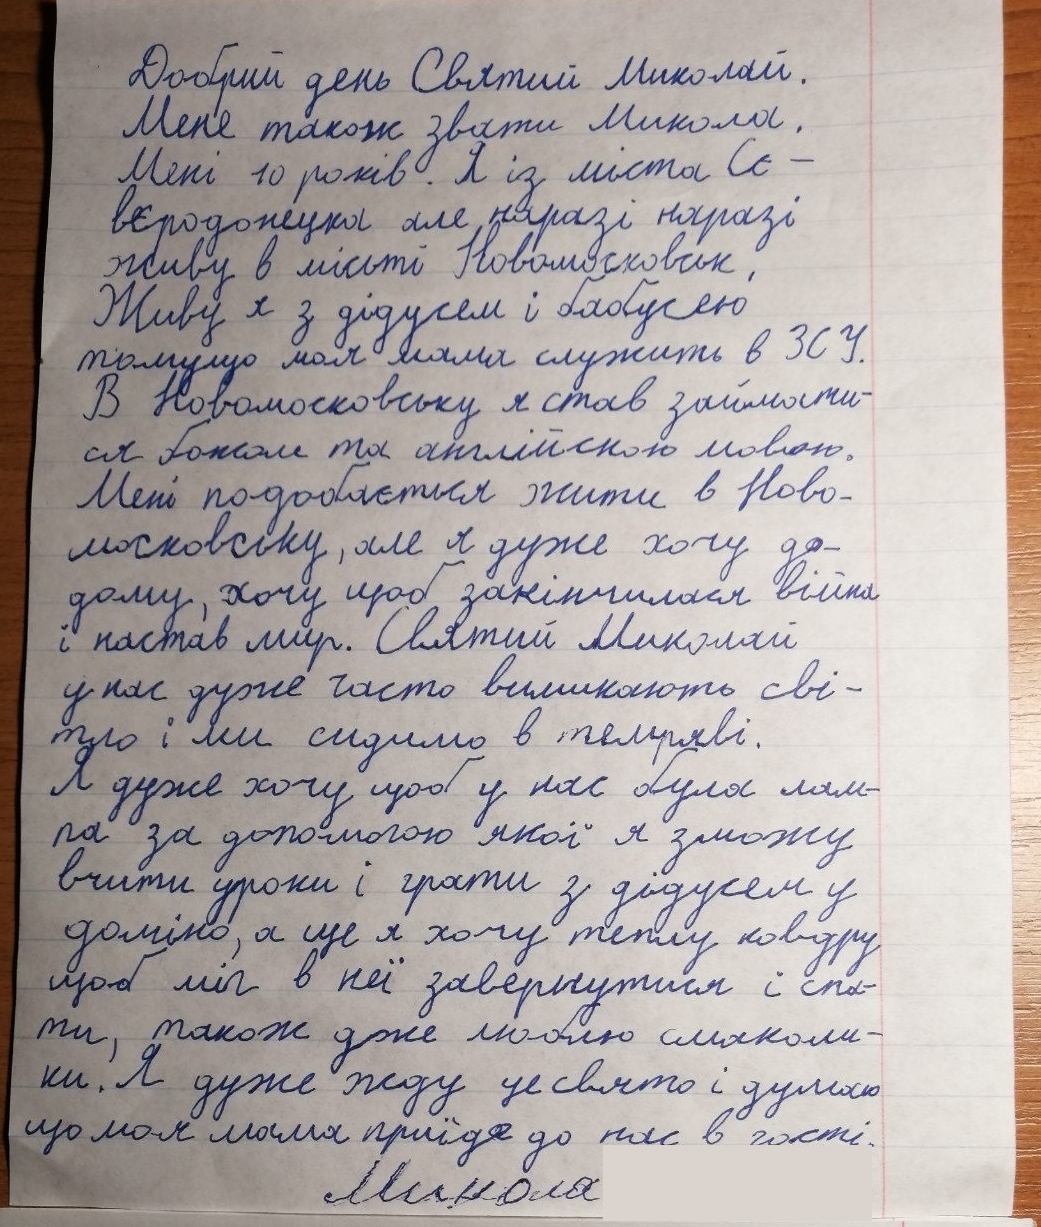 Добрий день Святий Миколай.
Мене також звати Микола.
Мені 10 років. Я із міста Сє-
вєродонецка але наразі наразі
живу в місьті Новомосковськ.
Живу я з дідусем і бабусею
томущо моя мама служить в ЗСУ.
В Новомосковську я став займати-
ся боксом та англійскою мовою.
Мені подобається жити в Ново-
московську, але я дуже хочу до-
дому, хочу щоб закінчилася війна
і настав мир. Святий Миколай
у нас дуже часто вимикають сві-
тло і ми сидимо в темряві.
Я дуже хочу щоб у нас була лам-
па за допомогою якої я зможу
вчити уроки і грати з дідусем у
доміно, а ще я хочу теплу ковдру
щоб міг в неї завернутися і спа-
ти, також дже люблю смаколи-
ки. Я дуже жду це свято і думаю
що моя мама приїде до нас в гості.
Микола